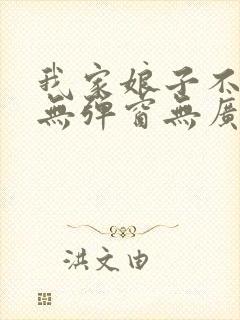 我家娘子不
無彈窗無廣
洪文由